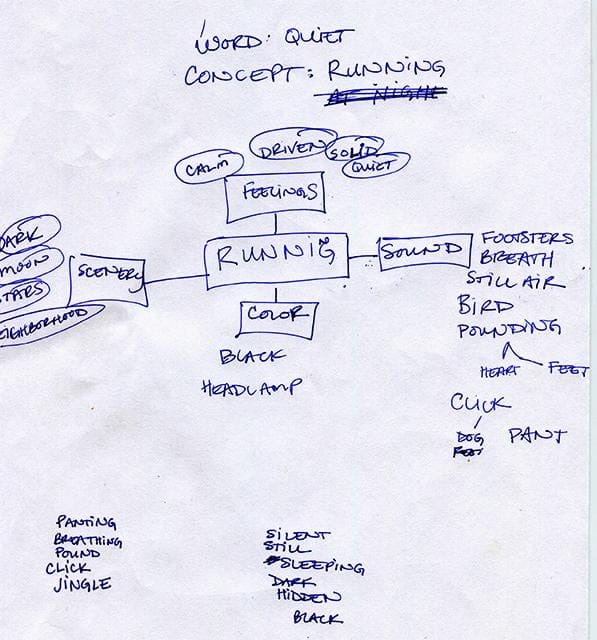 WORD: QUIET
CONCEPT: RUNNING
AT NIGHT
CALM
DRIVEN
SOLID
QUIET
FEELINGS
DARK
MOON
STARS
NEIGHBORHOOD
SCENERY
RUNNIG
SOUND
FOOTSTERS
BREATH
STILL AIR
BIRD
POUNDING
HEART FEET
CLICK
DOG PANT
FEET
COLOR
BLACK
HEADLAMP
PANTING
BREATHING
POUND
CLICK
JINGLE
SILENT
STILL
SLEEPING
DARK
HIDDEN
BLACK